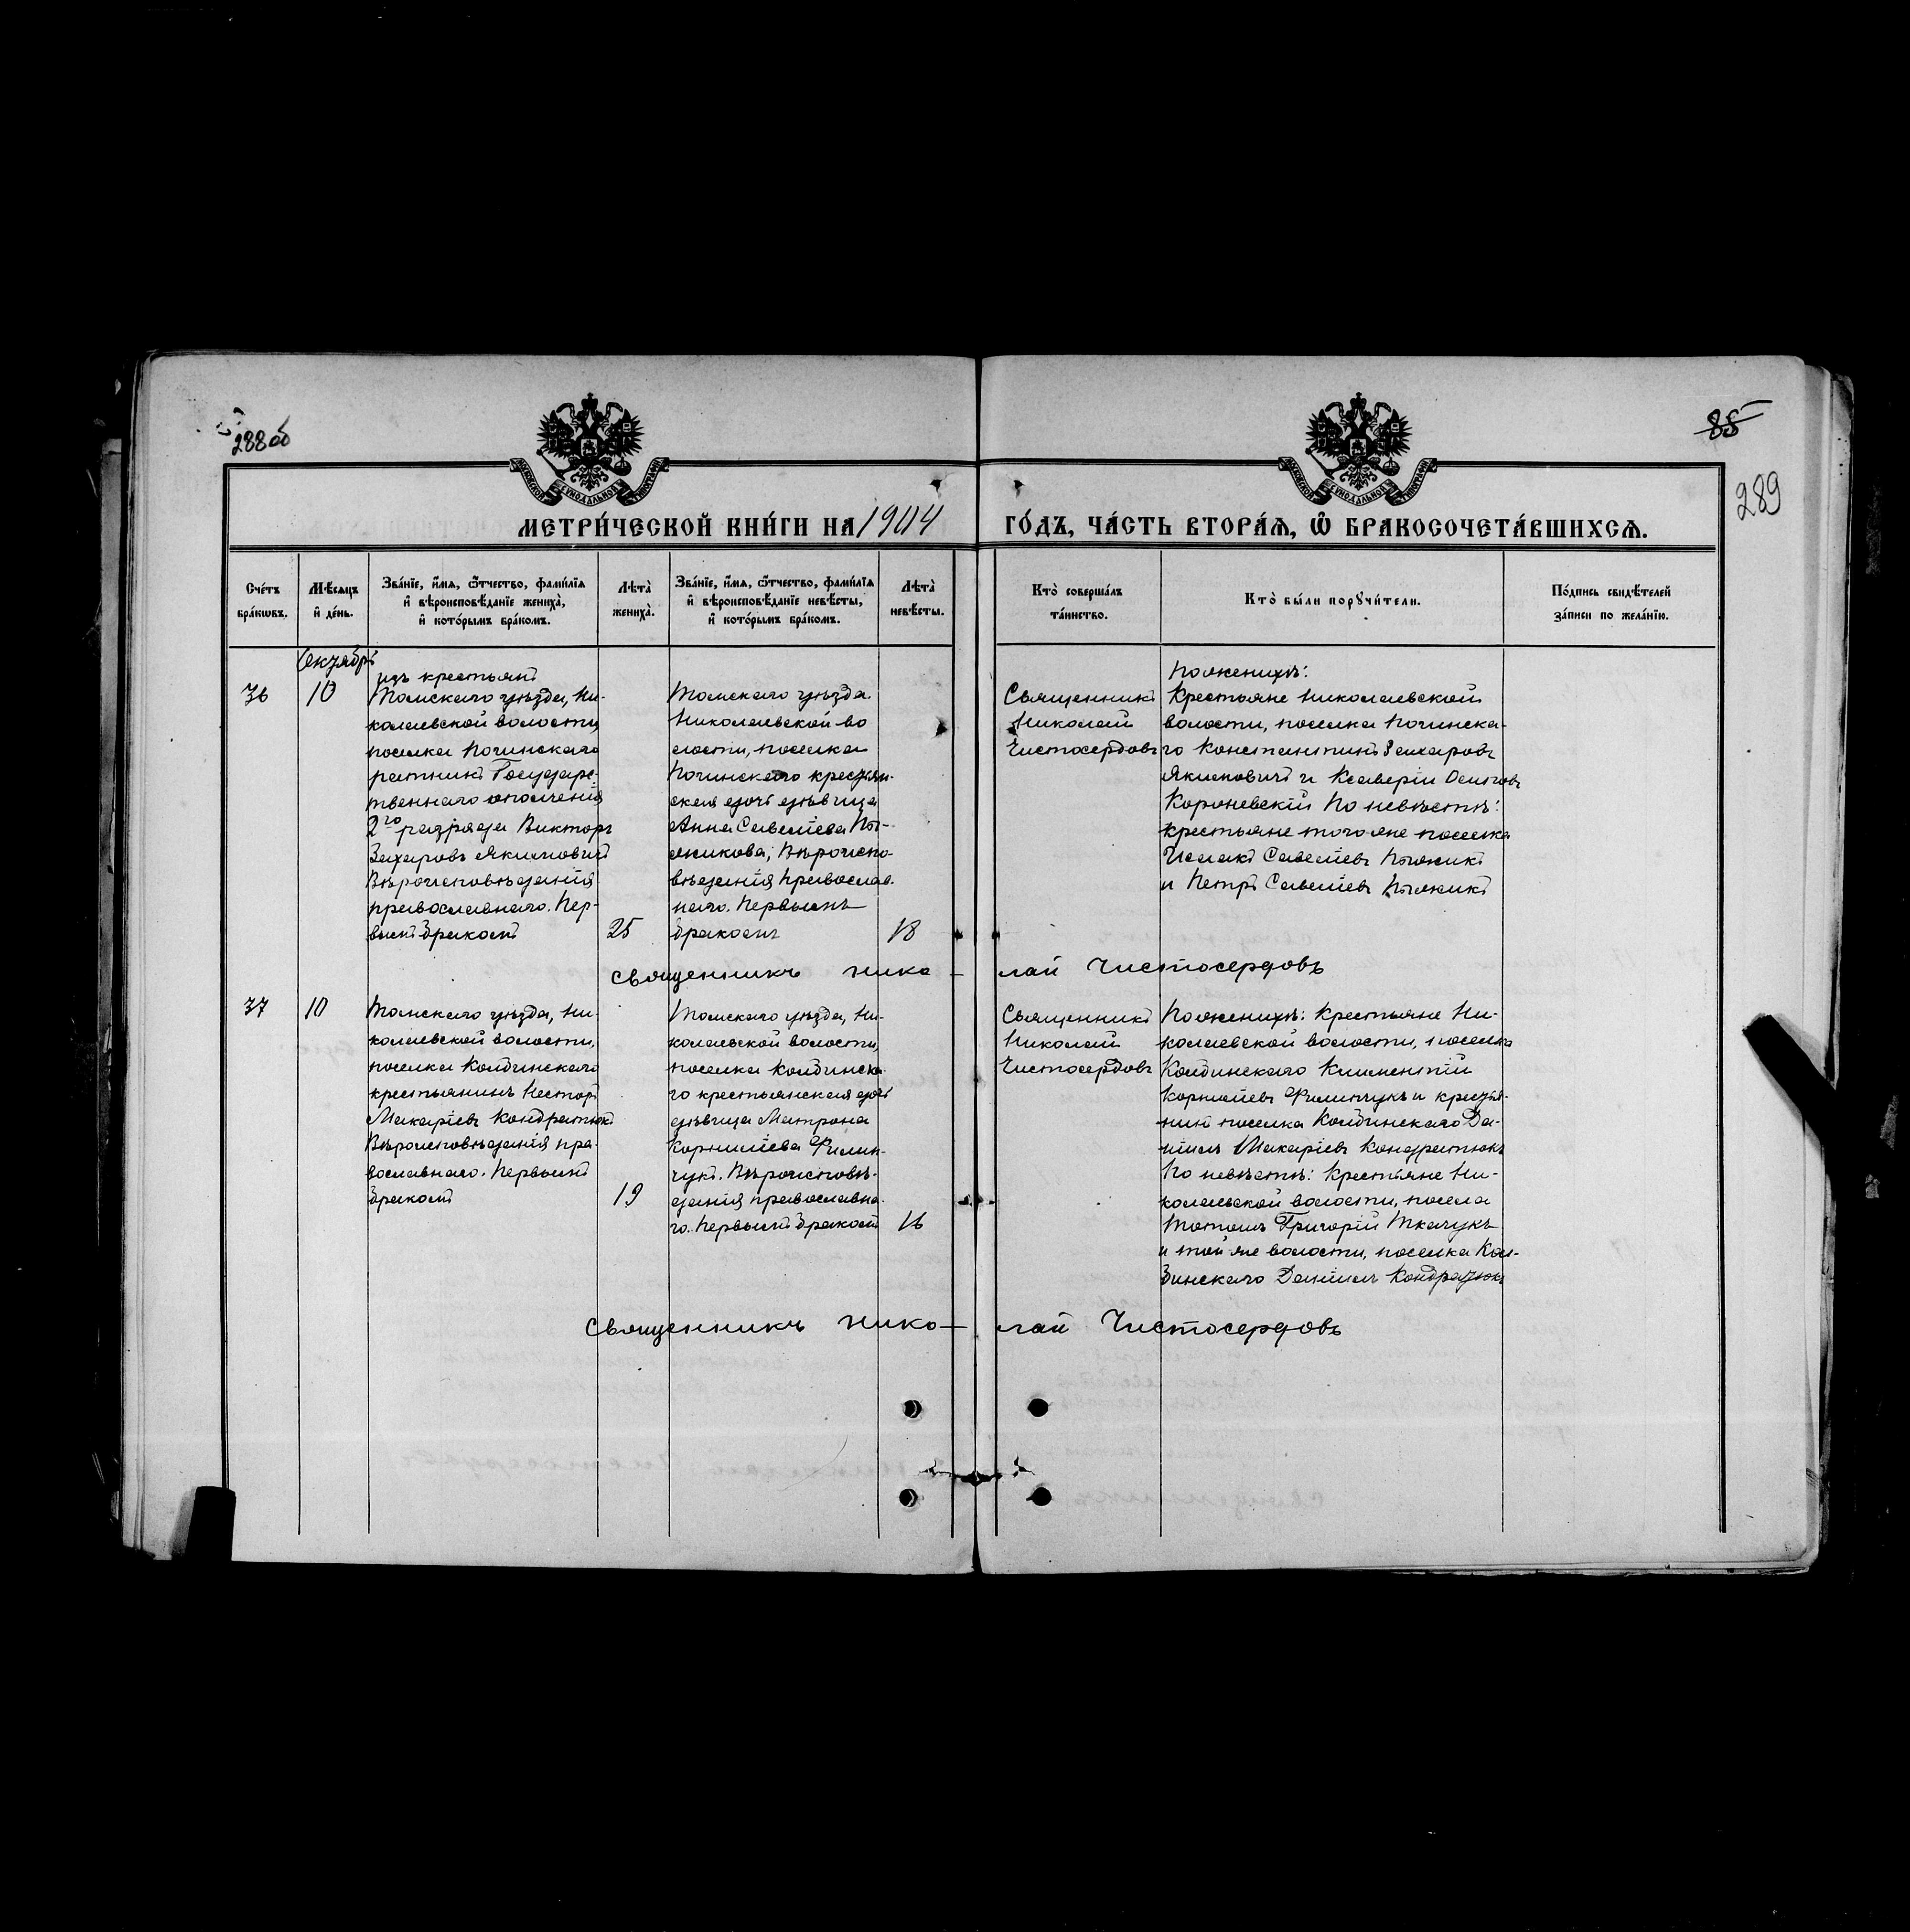 288об
85
289
МОСКОВСКОЙ СѴНОДАЛЬНОЙ ТИПОГРАФІИ
МОСКОВСКОЙ СѴНОДАЛЬНОЙ ТИПОГРАФІИ
МЕТРИ́ЧЕСКОЙ КНИ́ГИ НА 1904
ГО́ДЪ, ЧА́СТЬ ВТОРА́Ѧ, Ѽ БРАКОСОЧЕТА́ВШИХСѦ.
Сче́тъ
бра́кѡвъ.
Мѣ́сѧцъ
и҆ де́нь.
Зва́нїе, и҆́мѧ, ѻ҆́тчество, фами́лїѧ
и҆ вѣроисповѣ́данїе жениха̀,
и҆ кото́рымъ бра́комъ.
Лѣ́та̀
жениха̀.
Зва́нїе, и҆́мѧ, ѻ҆́тчество, фами́лїѧ
и҆ вѣроисповѣ́данїе невѣ́сты,
и҆ кото́рымъ бра́комъ.
Лѣ́та̀
невѣ́сты.
Кто̀ соверша́лъ
та́инство.
Кто̀ бы́ли порꙋчи́тели.
По́дпись свидѣ́телей
за́писи по жела́нїю.
Октябрь
36
10
изъ крестьянъ
Томскаго уѣзда, Ни-
колаевской волости,
поселка Починскаго
ратникъ Государс-
твеннаго ополченія
2го разряда Викторъ
Захаровъ Якимовичъ
Вѣроисповѣданія
православнаго. Пер-
вымъ бракомъ
25
Томскаго уѣзда
Николаевской во
лости, поселка
Починскаго крестьян-
ская дочь дѣвица
Анна Савеліева Пы-
жикова, Вѣроиспо-
вѣданія Православ-
наго. Первымъ
бракомъ
18
Священникъ
Николай
Чистосердовъ
По женихѣ:
Крестьяне Николаевской
волости, поселка Починска-
го Константинъ Захаровъ
Якимовичъ и Ксаверій Осиповъ
Короневскій По невѣстѣ:
крестьяне того же поселка
Исаакъ Савеліевъ Пыжикъ
и Петръ Савеліевъ Пыжикъ
священникъ Нико-лай Чистосердовъ
37
10
Томскаго уѣзда, Ни-
колаевской волости,
поселка Колбинскаго
крестьянинъ Несторъ
Макаріевъ Кондратюкъ
Вѣроисповѣданія пра-
вославнаго. Первымъ
бракомъ
19
Томскаго уѣзда, Ни-
колаевской волости,
поселка Колбинска-
го крестьянская дочь
дѣвица Матрона
Корниліева Филип-
чукъ. Вѣроисповѣ-
данія православна-
го. Первымъ бракомъ
16
Священникъ
Николай
Чистосердовъ
По женихѣ: Крестьяне Ни-
колаевской волости, поселка
Колбинскаго Климентій
Корниліевъ Филипчукъ и крестья-
нинъ поселка Колбинскаго Да-
ніилъ Макаріевъ Кондратюкъ
По невѣстѣ: Крестьяне Ни-
колаевской волости, посела
Григорій Ткачукъ
и той же волости, поселка Кол-
бинскаго Даніилъ Кондратюкъ
священникъ Нико-лай Чистосердовъ